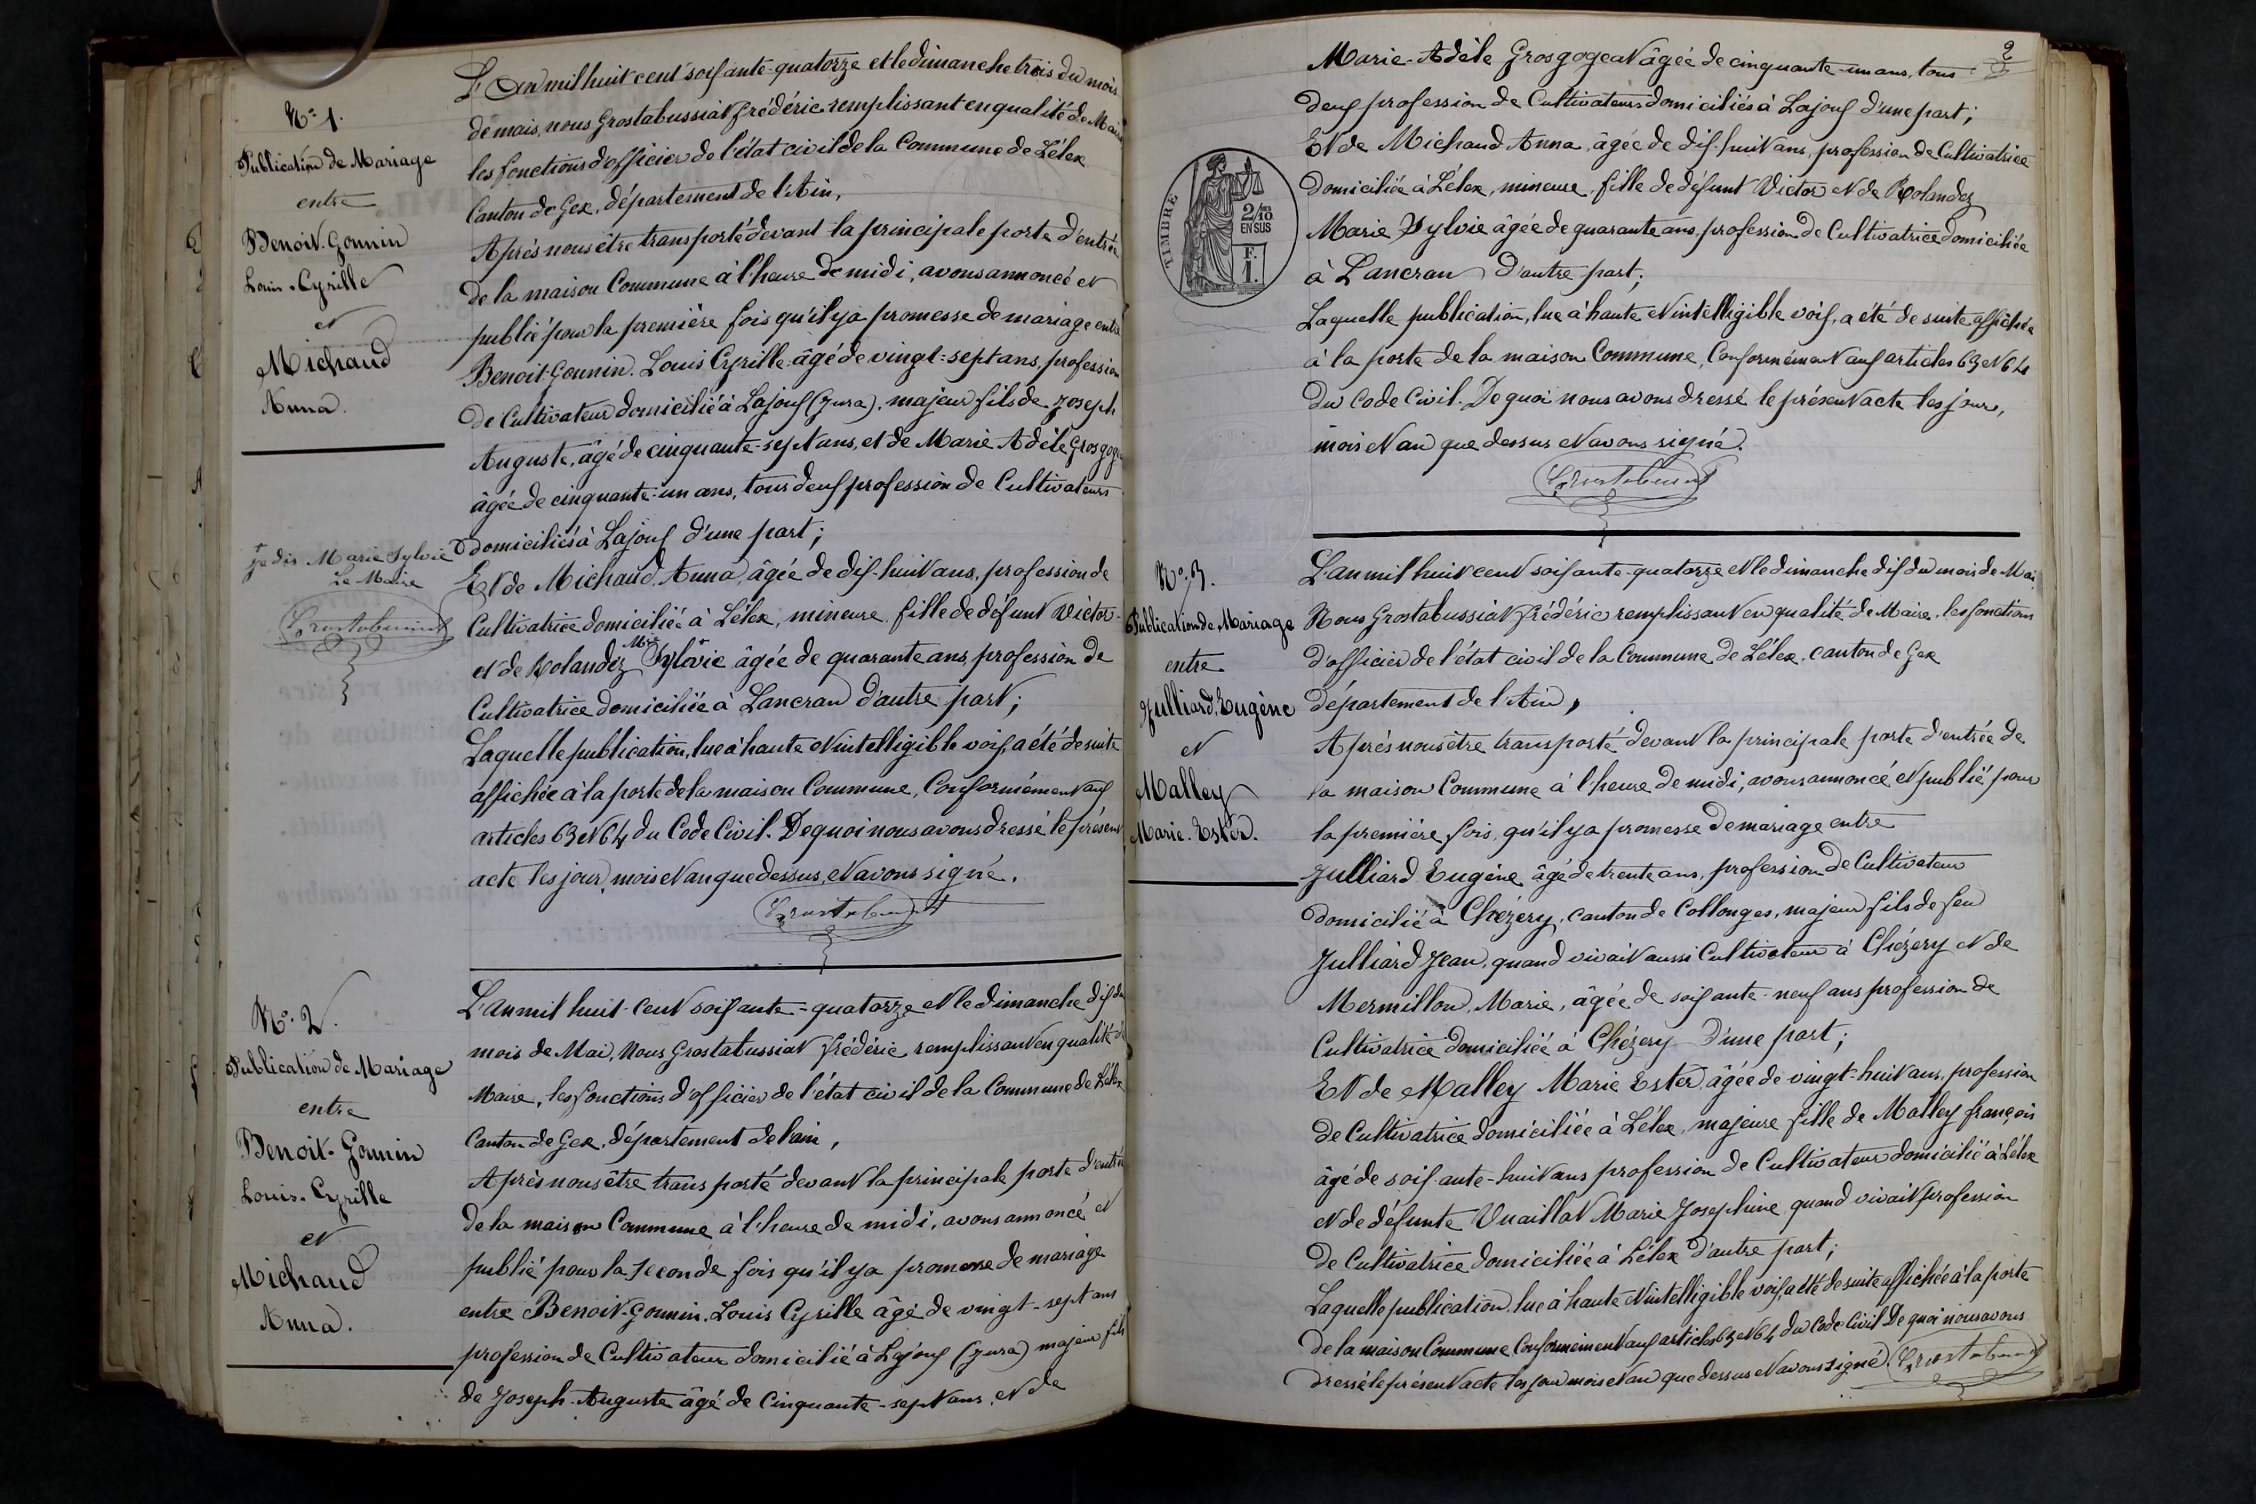 N° 1.
Publication de Mariage
entre
Benoit-Gonnin
Louis-Cyrille
et
Michaud
Anna.
+ je dis Marie Sylvie
Le Maire
L'an mil huit cent soixante-quatorze et le dimanche trois du mois
de mai, nous Grostabussiat Frédéric remplissant en qualité de Maire
les fonctions d'officier de l'état civil de la Commune de Lélex
Canton de Gex, département de l'Ain,
Après nous être transporté devant la principale porte d'entrée
de la maison Commune à l'heure de midi, avons annoncé et
publié pour la première fois qu'il y a promesse de mariage entre
Benoit-Gonnin Louis Cyrille âgé de vingt-sept ans, profession
de Cultivateur domicilié à Lajoux (Jura), majeur fils de Joseph
Auguste, âgé de cinquante-sept ans, et de Marie Adèle Grosgoge
âgée de cinquante-un ans, tous deux profession de Cultivateurs
domiciliés à Lajoux d'une part;
Et de Michaud Anna, âgée de dix-huit ans, profession de
Cultivatrice domiciliée à Lélex, mineure fille de défunt Victor
et de Rolandez Mie Sylvie + âgée de quarante ans, profession de
Cultivatrice domiciliée à Lancran d'autre part;
Laquelle publication, lue à haute et intelligible voix, a été de suite
affichée à la porte de la maison Commune, Conformément aux
articles 63 et 64 du Code Civil. De quoi nous avons dressé le présent
acte les jour, mois et an que dessus, et avons signé.
N° 2.
Publication de Mariage
entre
Benoit-Gonnin
Louis-Cyrille
et
Michaud
Anna.
L'an mil huit cent soixante-quatorze et le dimanche dix du
mois de Mai, Nous Grostabussiat Frédéric remplissant en qualité de
Maire, les fonctions d'officier de l'état civil de la Commune de Lélex
Canton de Gex, département de l'ain,
Après nous être transporté devant la principale porte d'entrée
de la maison Commune à l'heure de midi, avons annoncé et
publié pour la seconde fois qu'il y a promesse de mariage
entre Benoit-Gonnin Louis Cyrille âgé de vingt-sept ans
profession de Cultivateur domicilié à Lajoux (Jura) majeur fils
de Joseph-Auguste âgé de Cinquante-sept ans, et de
2
Marie-Adèle Grosgogeat âgée de cinquante-un ans, tous
deux profession de Cultivateurs domiciliés à Lajoux d'une part;
Et de Michaud Anna, âgée de dix-huit ans, profession de Cultivatrice
domiciliée à Lélex, mineure, fille de défunt Victor et de Rolandez
Marie Sylvie âgée de quarante ans, profession de Cultivatrice domiciliée
à Lancran d'autre part;
Laquelle publication, lue à haute et intelligible voix, a été de suite affichée
à la porte de la maison Commune, Conformément aux articles 63 et 64
du Code Civil. De quoi nous avons dressé le présent acte les jour,
mois et an que dessus et avons signé.
TIMBRE
2/10
EN SUS
F.
1.
N° 3.
Publication de Mariage
entre
Julliard Eugène
et
Malley
Marie-Ester.
L'an mil huit cent soixante-quatorze et le dimanche dix du mois de Mai
Nous Grostabussiat Frédéric remplissant en qualité de Maire, les fonctions
d'officier de l'état civil de la Commune de Lélex, canton de Gex
département de l'Ain,
Après nous être transporté devant la principale porte d'entrée de
la maison Commune à l'heure de midi, avons annoncé et publié pour
la première fois, qu'il y a promesse de mariage entre
Julliard Eugène âgé de trente ans, profession de Cultivateur
domicilié à Chézery, canton de Collonges, majeur fils de feu
Julliard Jean, quand vivait aussi Cultivateur à Chézery et de
Mermillon, Marie, âgée de soixante-neuf ans profession de
Cultivatrice domiciliée à Chézery d'une part;
Et de Malley Marie Ester, âgée de vingt-huit ans, profession
de Cultivatrice domiciliée à Lélex, majeure fille de Malley françois
âgé de soixante-huit ans profession de Cultivateur domicilié à Lélex
et de défunte Vuaillat Marie Josephine quand vivait profession
de Cultivatrice domiciliée à Lélex d'autre part;
Laquelle publication, lue à haute et intelligible voix, a été de suite affichée à la porte
de la maison Commune Conformément aux articles 63 et 64 du Code Civil De quoi nous avons
dressé le présent acte les jour mois et an que dessus et avons signé.